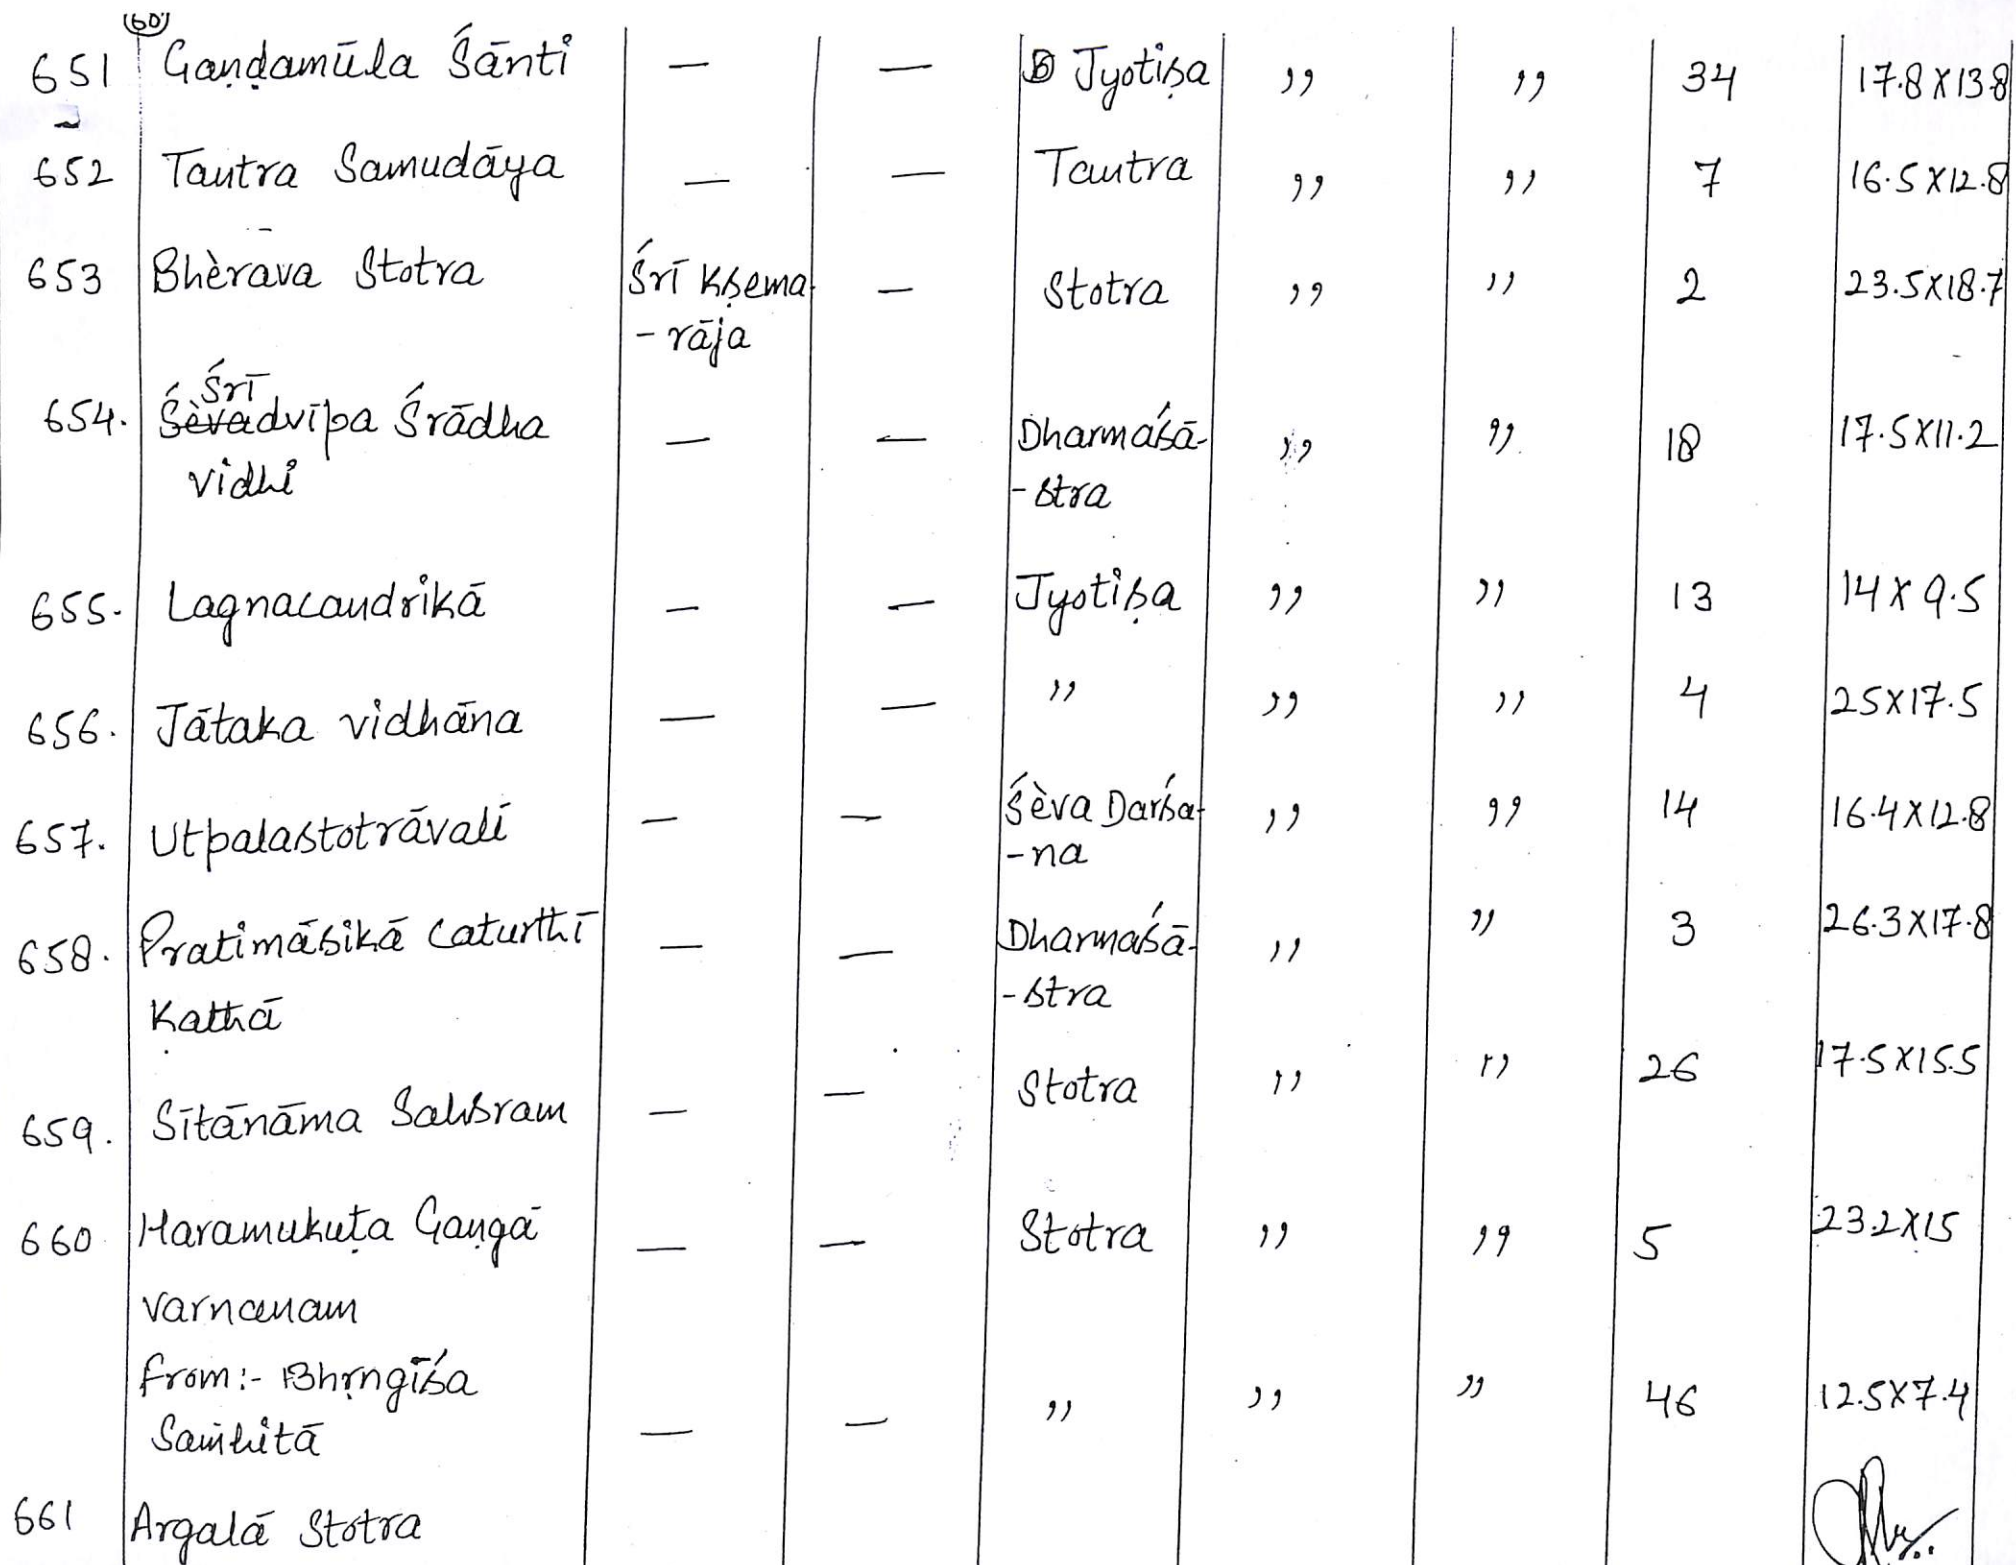 (60)
651 Gaṇḍamūla Śānti — — Jyotiṣa ,, ,, 34 17.8 X 13.8
652 Tantra Samudāya — — Tantra ,, ,, 7 16.5 X 12.8
653 Bhèrava Stotra Śrī Kṣema- — Stotra ,, ,, 2 23.5X18.7
- rāja
Śrī
654. Śèvadvīpa Śrādha — — Dharmaśā- ,, ,, 18 17.5X11.2
vidhi - stra
655. Lagnacandrikā — — Jyotiṣa ,, ,, 13 14 X 9.5
656. Jātaka vidhāna — — ,, ,, ,, 4 25X17.5
657. Utpalastotrāvalī — — Śèva Darśa- ,, ,, 14 16.4X12.8
- na
658. Pratimāsikā Caturthī — — Dharmaśā- ,, ,, 3 26.3X17.8
Kathā - stra
659. Sītānāma Sahsram — — Stotra ,, ,, 26 17.5X15.5
660 Haramukuṭa Gaṇgā — — Stotra ,, ,, 5 23.2X15
varnanam
from:- Bhṛngīśa
Saṁhitā — — ,, ,, ,, 46 12.5X7.4
661 Argalā Stotra